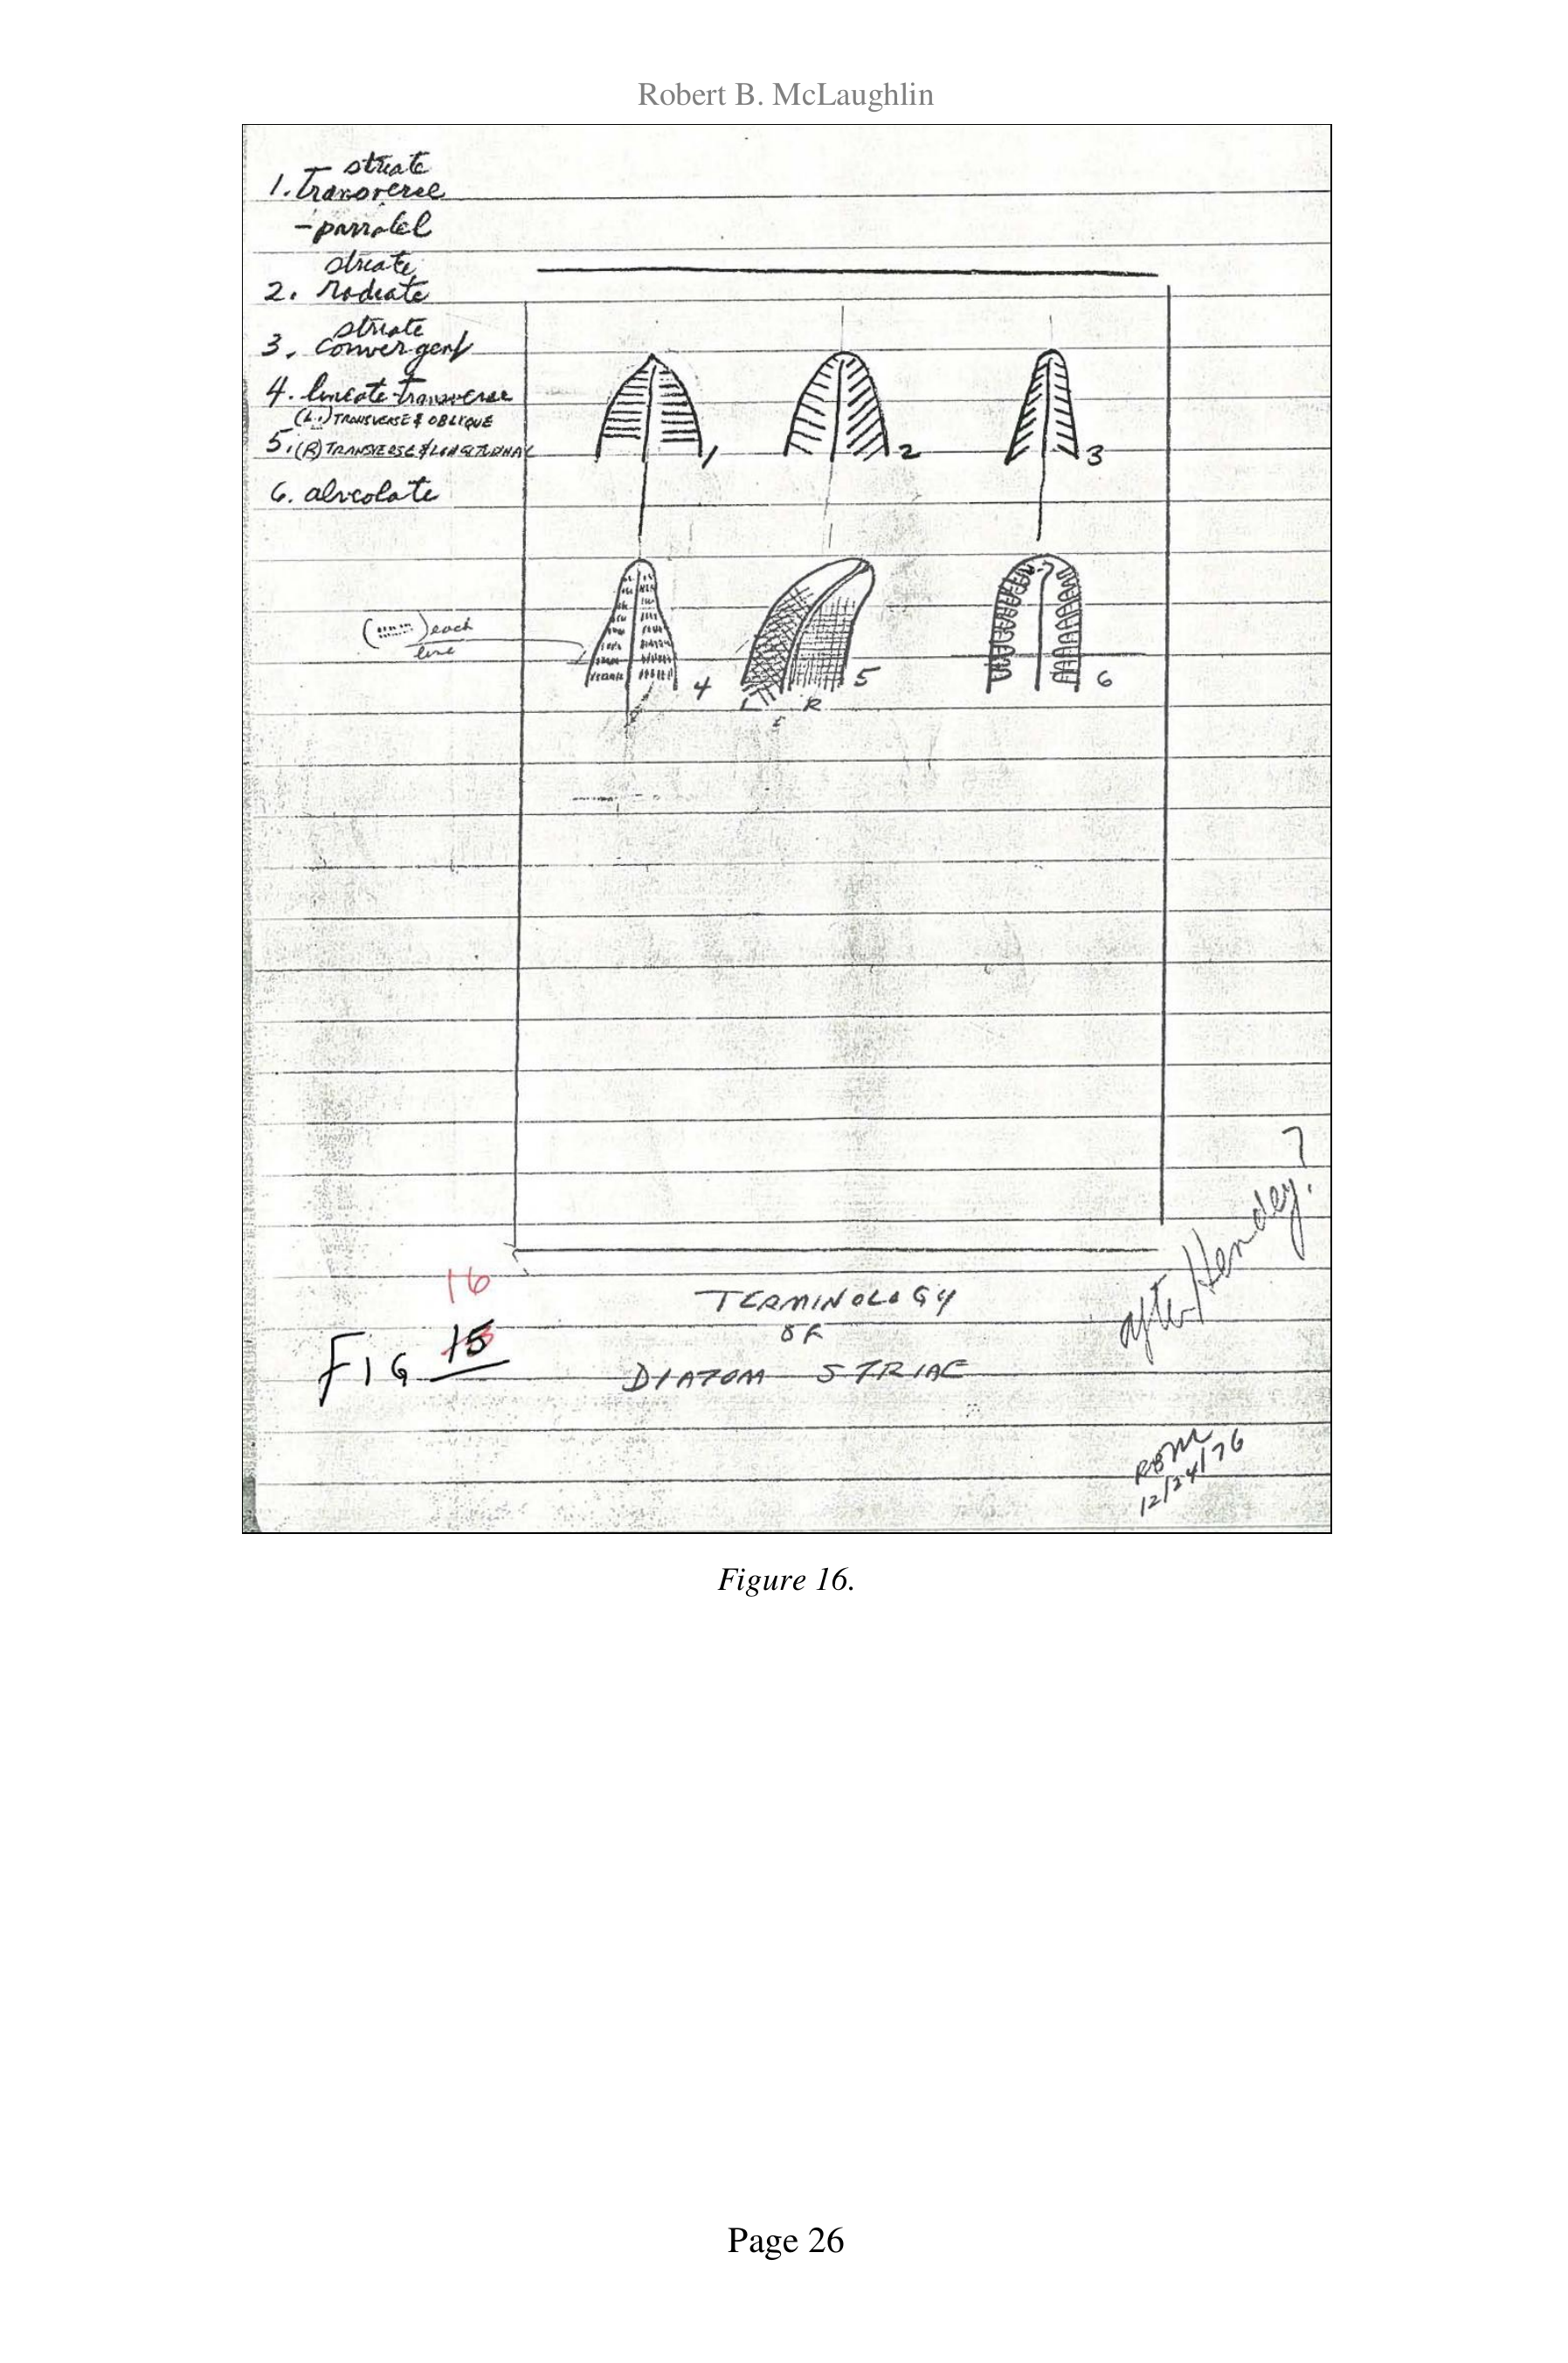 Robert B. McLaughlin
striate
1. Transverse
- parralel
striate
2. radiate
striate
3. convergent
4. lineate-transverse
(L.) TRANSVERSE & OBLIQUE
5. (R) TRANSVERSE & LONGITUDINAL
6. alveolate
1
2
3
each
line
4
5
6
L
R
16
FIG 15
TERMINOLOGY
OF
DIATOM STRIAE
after Hendey?
RBM
12/24/76
Figure 16.
Page 26